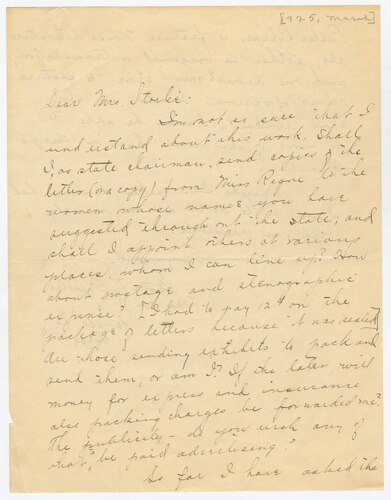 [1925, March]
Dear Mrs.
I'm not so sure that I
understand about this work. Shall
I, as state chairman, send copies of the
letter (or a copy) from Miss to the
women whose names you have
suggested through out the state; and
shall I appoint others at various
places, whom I can line up? How
about postage and stenographic
expense? I had to pay on the
package of letters because it was sealed
Are those sending exhibits to pack and
send them, or am I? If the later will
money for express and insurance
also packing charges be forwarded me?
The publicity - do you wish any of
that be paid advertising?
So far I have asked the